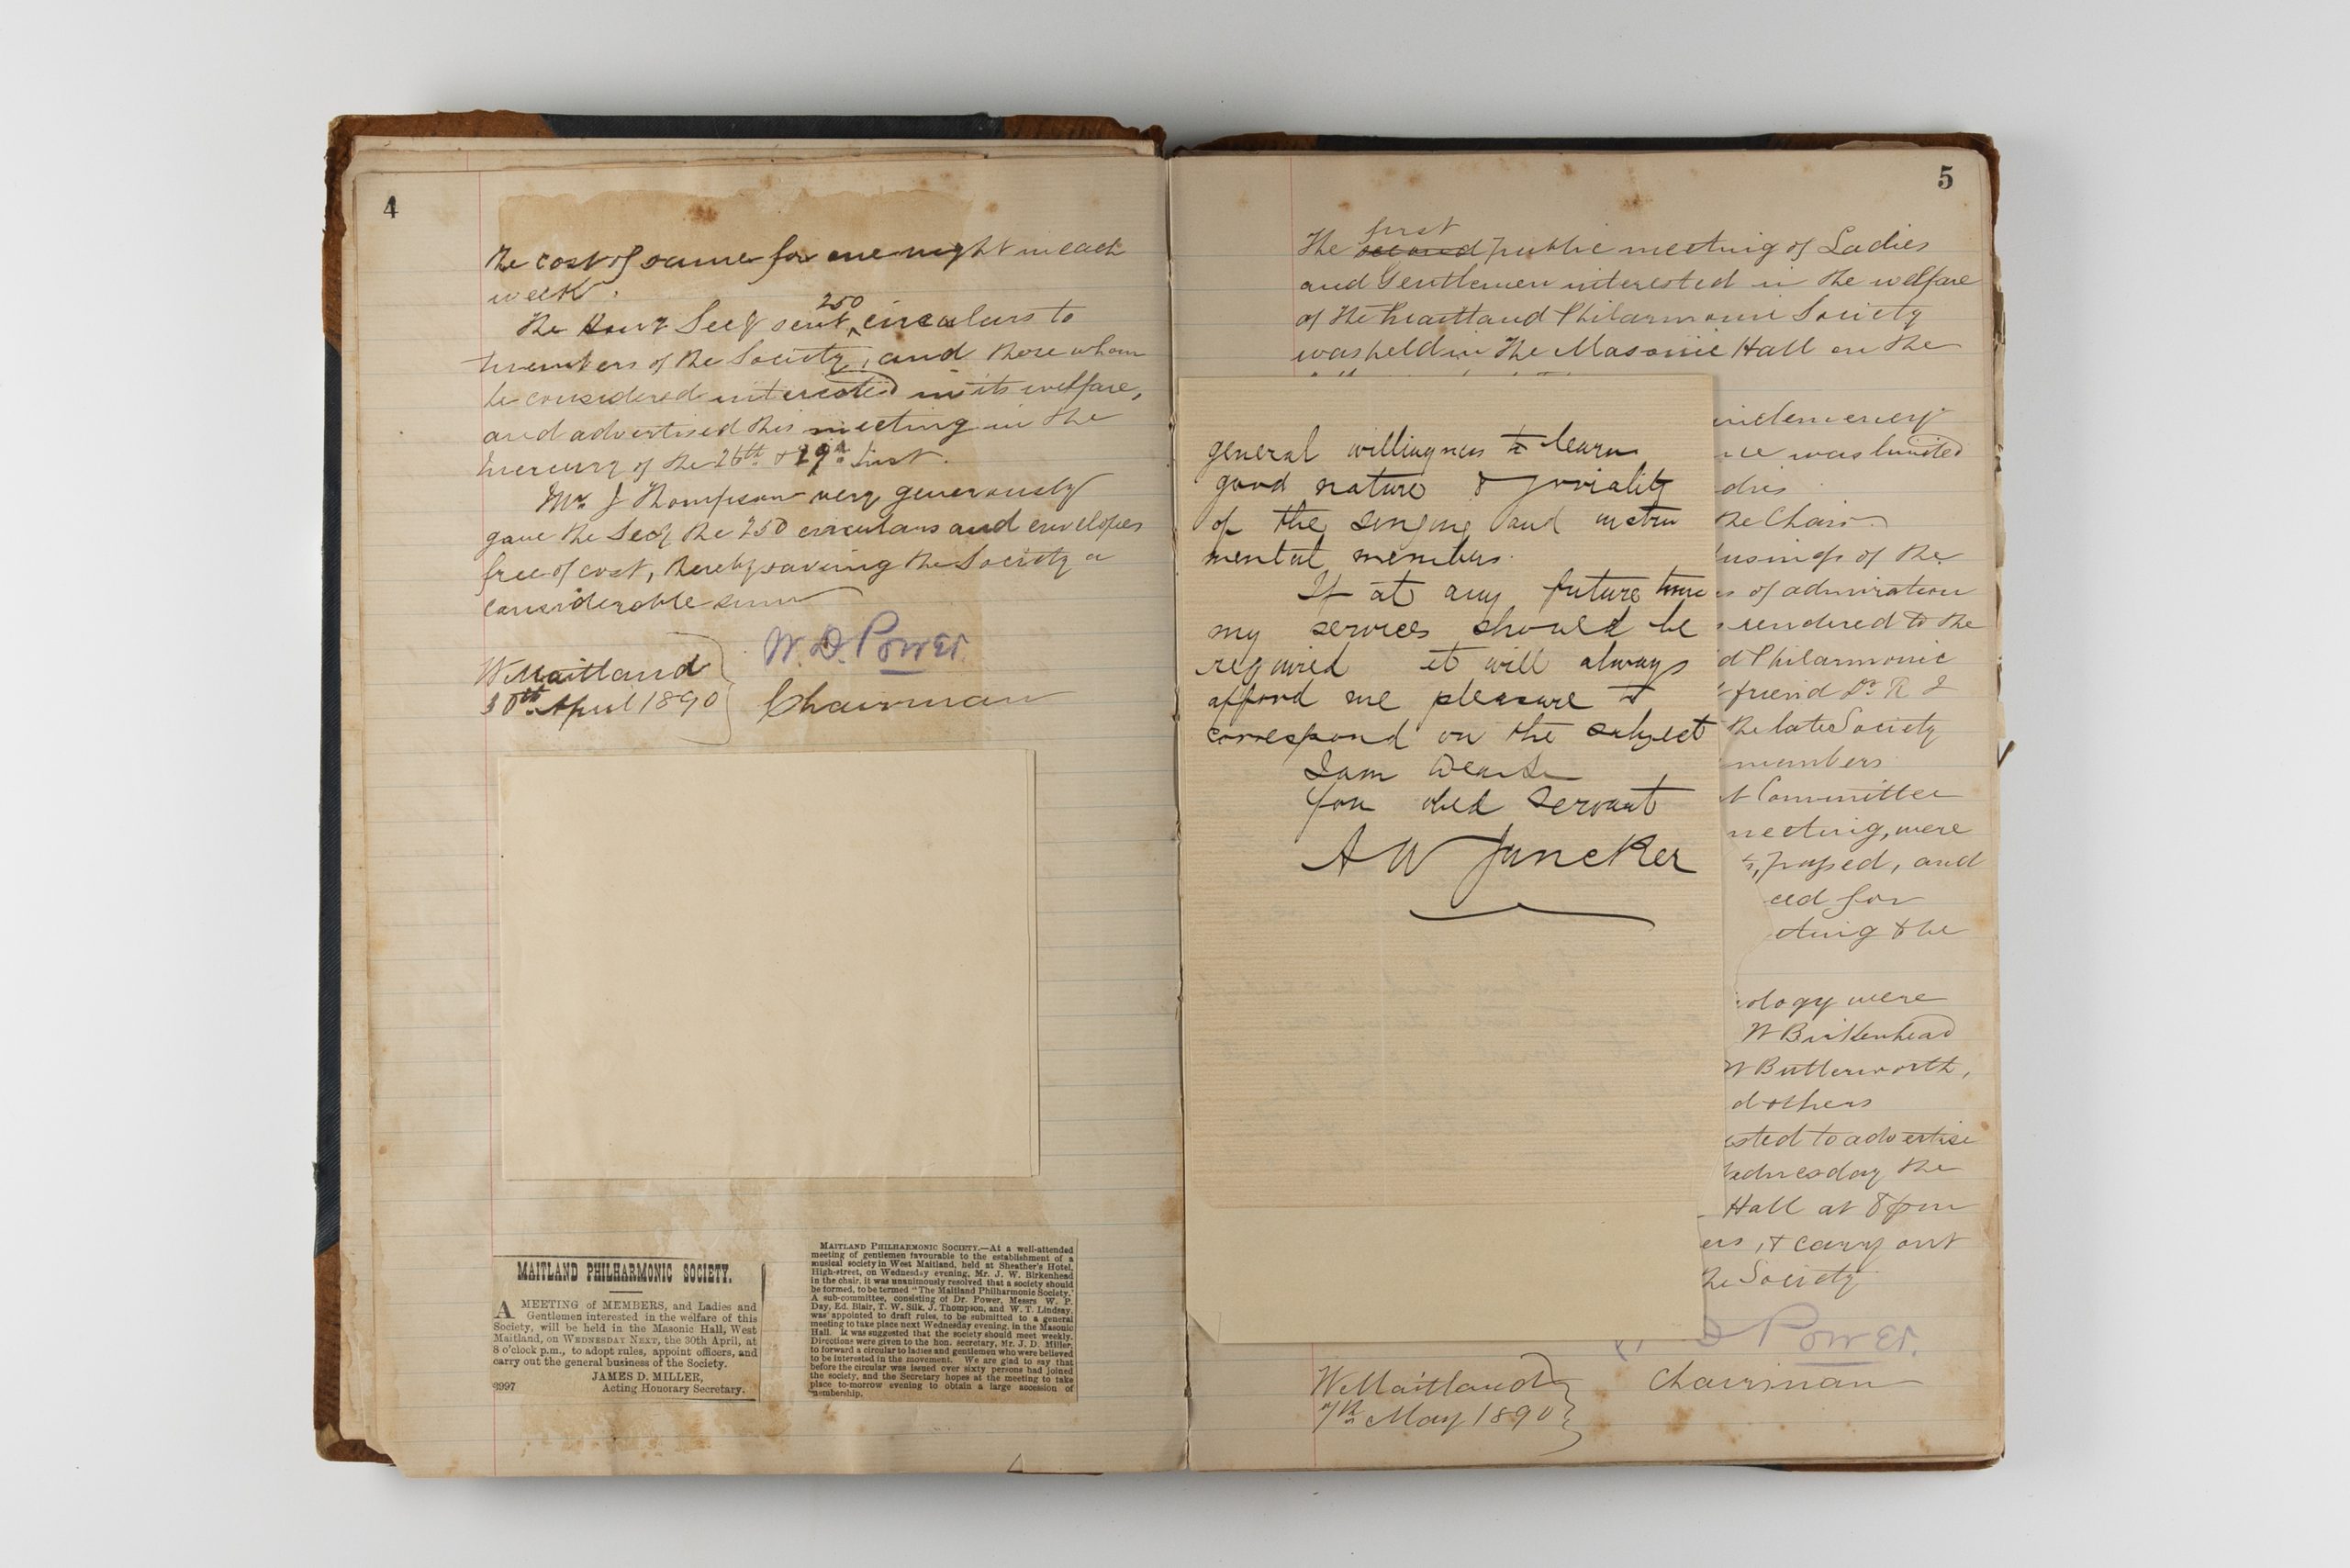 4
the cost of same for one night in each
week.
250
The Hony Secy sent ^ circulars to
members of the Society, and those whom
he considered interested in its welfare,
and advertised this meeting in the
Mercury of the 26th & 29th Inst.
Mr. J Thompson very generously
gave the Secy the 250 circulars and envelopes
free of cost, thereby saving the Society a
considerable sum
W Maitland
30th April 1890
W. D. Power.
Chairman
MAITLAND PHILHARMONIC SOCIETY.
A MEETING of MEMBERS, and Ladies and
Gentlemen interested in the welfare of this
Society, will be held in the Masonic Hall, West
Maitland, on WEDNESDAY NEXT, the 30th April, at
8 o'clock p.m., to adopt rules, appoint officers, and
carry out the general business of the Society.
JAMES D. MILLER,
3997 Acting Honorary Secretary.
MAITLAND PHILHARMONIC SOCIETY.—At a well-attended
meeting of gentlemen favourable to the establishment of a
musical society in West Maitland, held at Sheather's Hotel,
High-street, on Wednesday evening, Mr. J. W. Birkenhead
in the chair, it was unanimously resolved that a society should
be formed, to be termed "The Maitland Philharmonic Society."
A sub-committee, consisting of Dr. Power, Messrs W. P.
Day, Ed. Blair, T. W. Silk, J. Thompson, and W. T. Lindsay,
was appointed to draft rules, to be submitted to a general
meeting to take place next Wednesday evening, in the Masonic
Hall. It was suggested that the society should meet weekly.
Directions were given to the hon. secretary, Mr. J. D. Miller,
to forward a circular to ladies and gentlemen who were believed
to be interested in the movement. We are glad to say that
before the circular was issued over sixty persons had joined
the society, and the Secretary hopes at the meeting to take
place to-morrow evening to obtain a large accession of
membership.
5
first
The second public meeting of Ladies
and Gentlemen interested in the welfare
of the Maitland Philarmonic Society
was held in the Masonic Hall on the
general willingness to learn
good nature & joviality
of the singing and instru
mental members.
If at any future time
my services should be
required it will always
afford me pleasure to
correspond on the subject
I am Dear Sir
Your obed Servant
A W Juncker
inclemency
was limited
dies
the Chair.
of the
of admiration
rendered to the
d Philarmonic
friend Dr. R J
the late Society
members
Committee
meeting, were
passed, and
ed for
eting & the
ology were
W Birkenhead
W Butterworth,
d others
ested to advertise
Wednesday the
Hall at 8 pm
ers, & carry out
the Society
D Power.
Chairman
W Maitland
7th May 1890